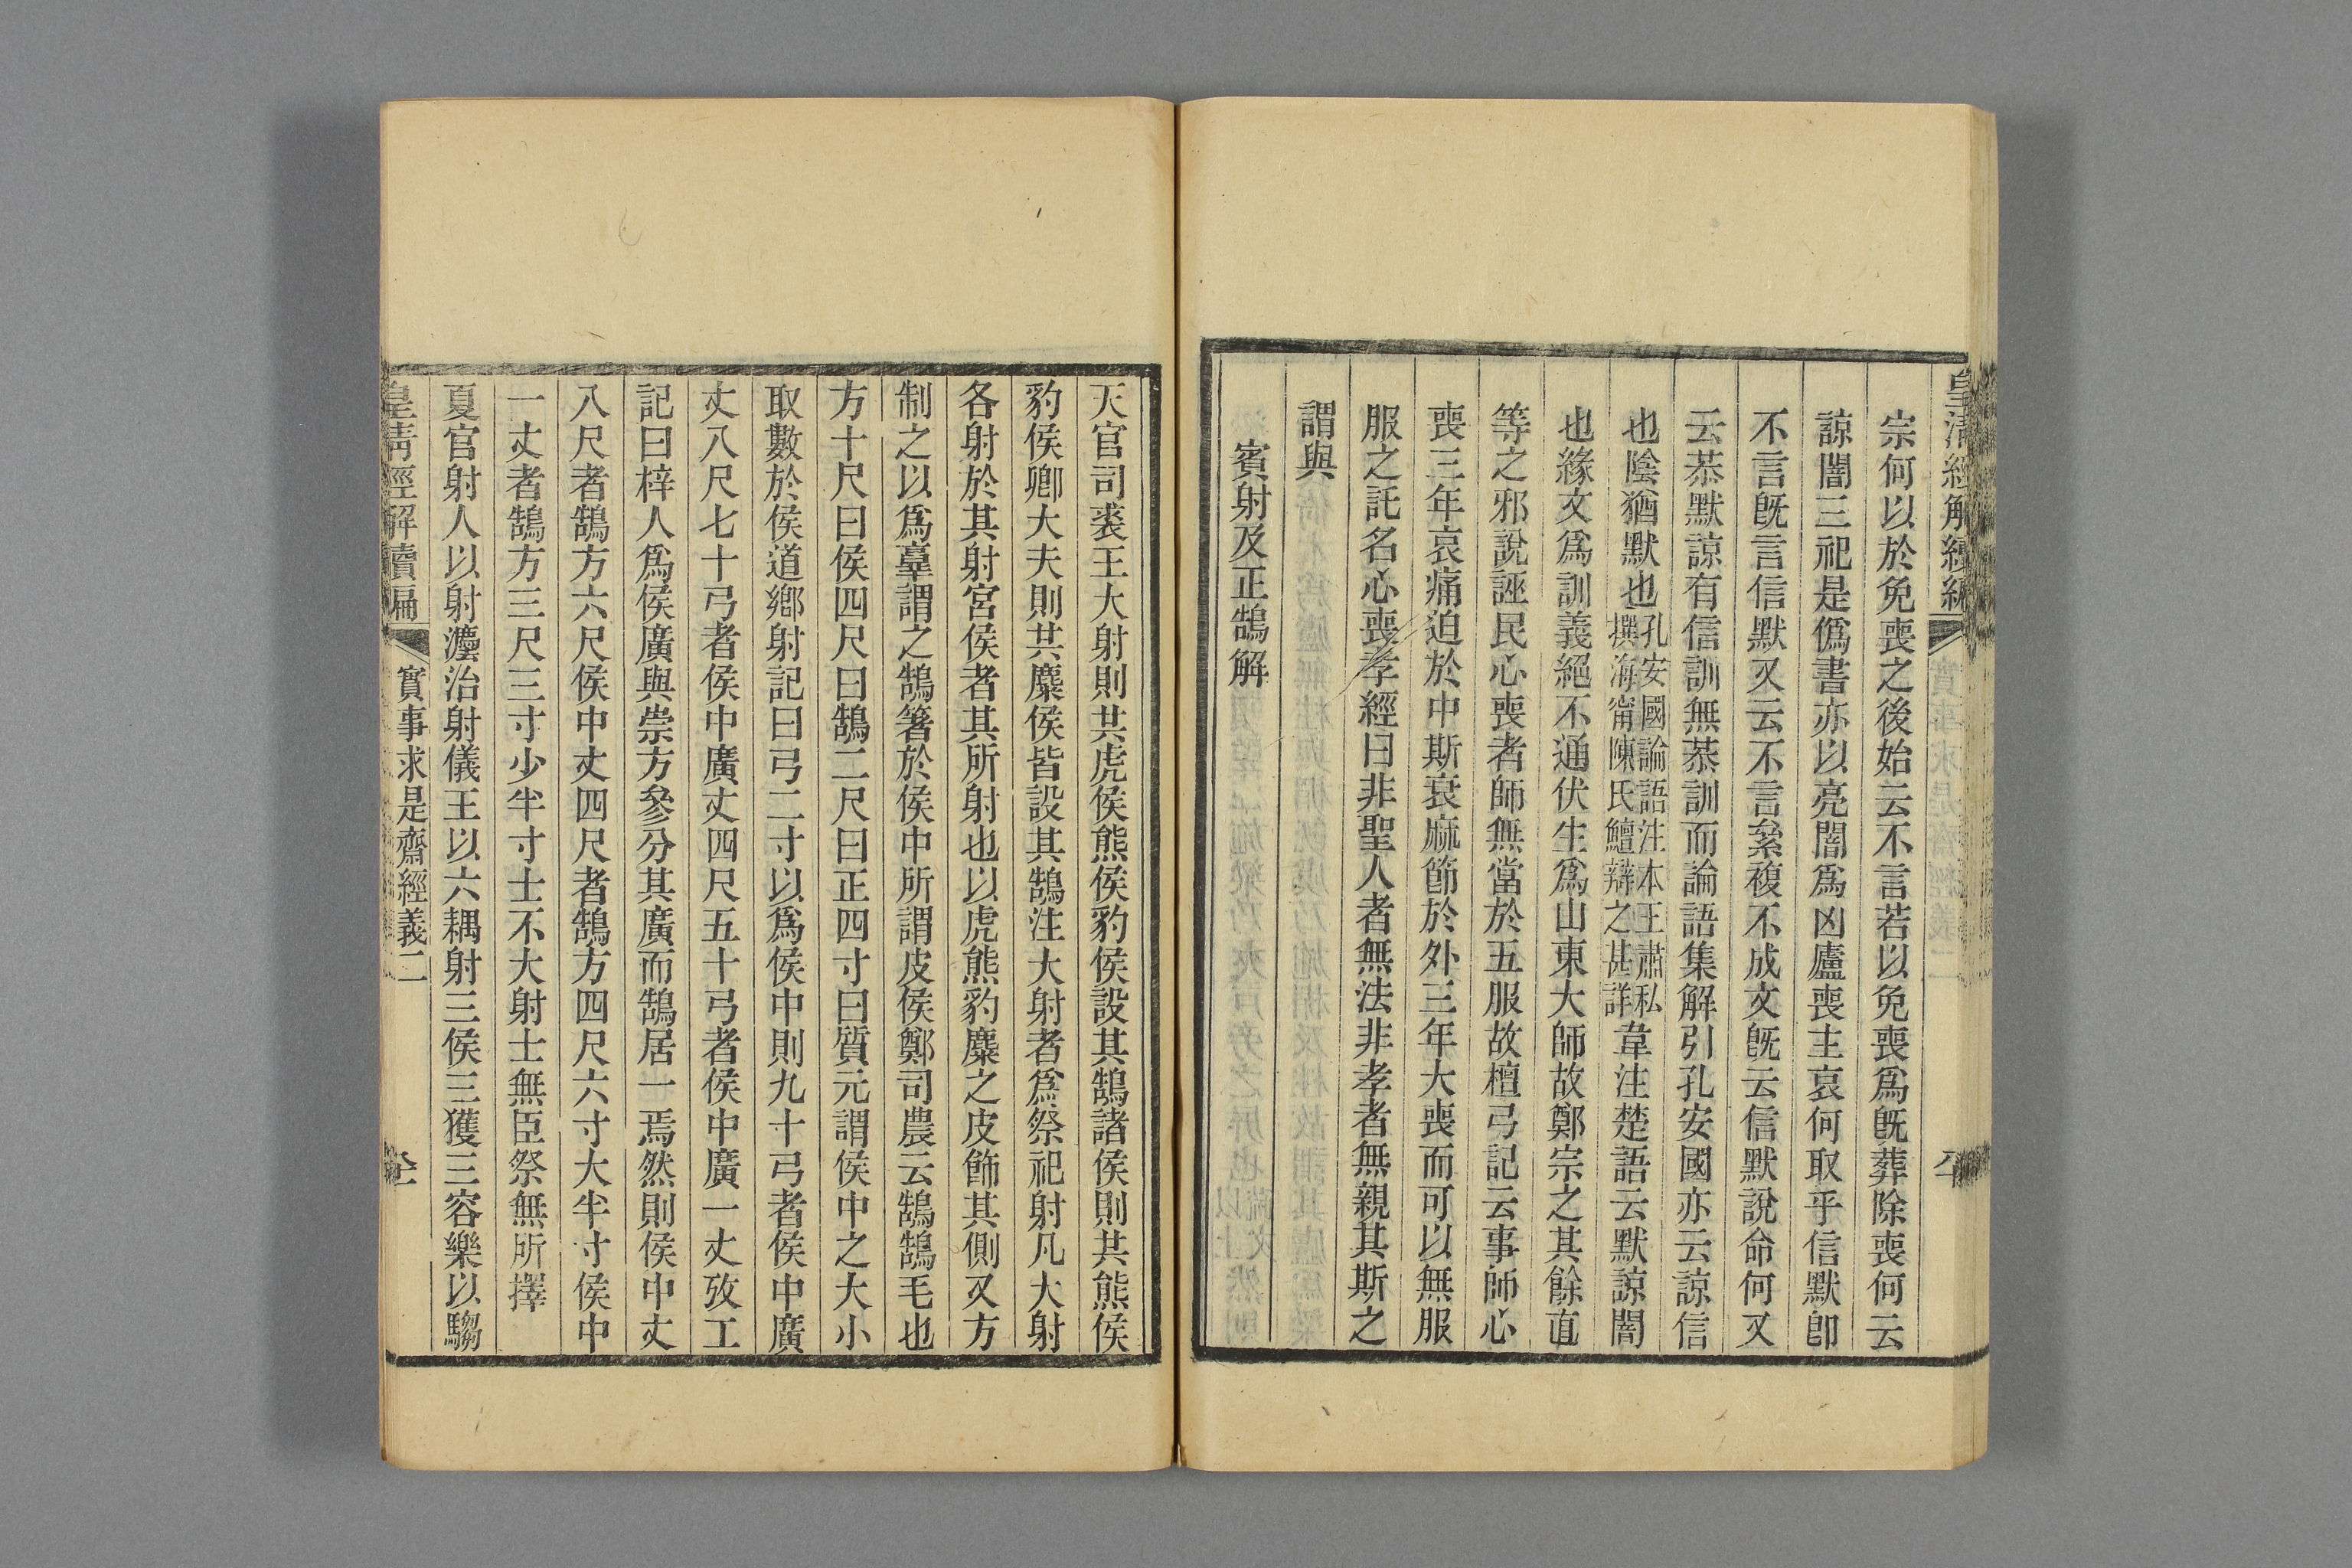 皇清經解續編
宗何以於免喪之後始云不言若以免喪爲旣葬除喪何云
諒闇三祀是僞書亦以亮闇爲凶廬喪主哀何取乎信默卽
不言旣言信默又云不言絫複不成文旣云信默說命何又
云恭默諒有信訓無恭訓而論語集解引孔安國亦云諒信
也陰猶默也孔安國論語注本王肅私撰海甯陳氏鱣辯之甚詳韋注楚語云默諒闇
也緣文爲訓義絕不通伏生爲山東大師故鄭宗之其餘直
等之邪說誣民心喪者師無當於五服故檀弓記云事師心
喪三年哀痛迫於中斯衰麻節於外三年大喪而可以無服
服之託名心喪孝經曰非聖人者無法非孝者無親其斯之
謂與
賓射及正鵠解
天官司裘王大射則共虎侯熊侯豹侯設其鵠諸侯則共熊侯
豹侯卿大夫則共麋侯皆設其鵠注大射者爲祭祀射凡大射
各射於其射宮侯者其所射也以虎熊豹麋之皮飾其側又方
制之以爲𦎫謂之鵠箸於侯中所謂皮侯鄭司農云鵠鵠毛也
方十尺曰侯四尺曰鵠二尺曰正四寸曰質元謂侯中之大小
取數於侯道鄉射記曰弓二寸以爲侯中則九十弓者侯中廣
丈八尺七十弓者侯中廣丈四尺五十弓者侯中廣一丈攷工
記曰梓人爲侯廣與崇方參分其廣而鵠居一焉然則侯中丈
八尺者鵠方六尺侯中丈四尺者鵠方四尺六寸大半寸侯中
一丈者鵠方三尺三寸少半寸士不大射士無臣祭無所擇
夏官射人以射灋治射儀王以六耦射三侯三獲三容樂以騶
皇清經解續編 實事求是齋經義二